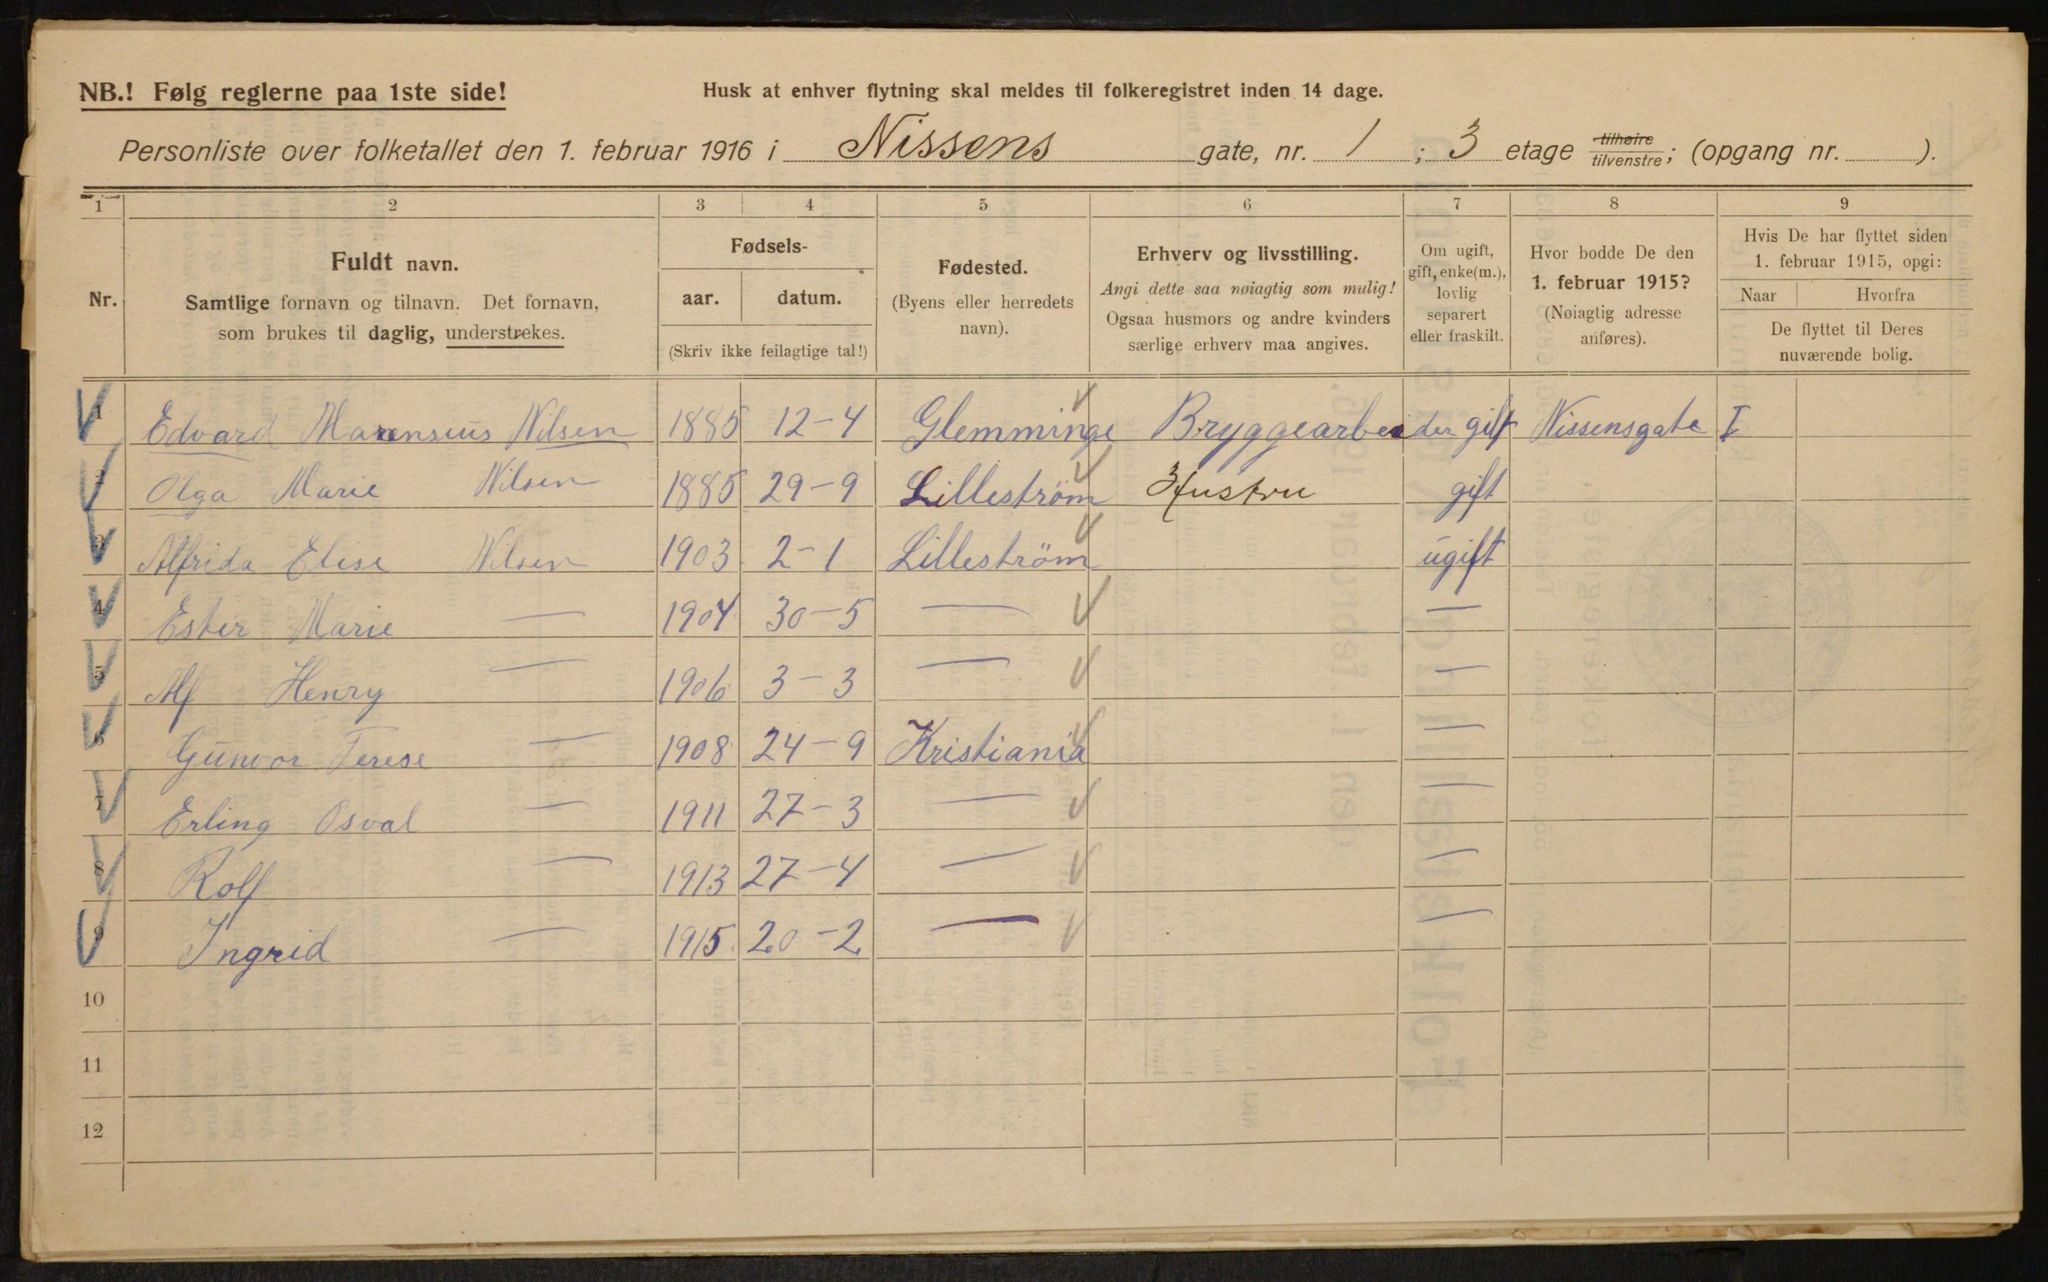 NB.! Følg reglerne paa 1ste side!
Husk at enhver flytning skal meldes til folkeregistret inden 14 dage.
Personliste over folketallet den 1. februar 1916 i Nissens gate, nr. 1 ; 3 etage tilhøire tilvenstre; (opgang nr. ).
1 2 3 4 5 6 7 8 9
Nr.
Fuldt navn.
Samtlige fornavn og tilnavn. Det fornavn,
som brukes til daglig, understrekes.
Fødsels-
aar. datum.
(Skriv ikke feilagtige tal!)
Fødested.
(Byens eller herredets
navn).
Erhverv og livsstilling.
Angi dette saa nøiagtig som mulig!
Ogsaa husmors og andre kvinders
særlige erhverv maa angives.
Om ugift,
gift, enke(m.),
lovlig
separert
eller fraskilt.
Hvor bodde De den
1. februar 1915?
(Nøiagtig adresse
anføres).
Hvis De har flyttet siden
1. februar 1915, opgi:
Naar Hvorfra
De flyttet til Deres
nuværende bolig.
1 Edvard Marensius Nilsen 1885 12-4 Glemminge Bryggearbeider gift Nissensgate I
2 Olga Marie Nilsen 1885 29-9 Lilleström Hustru gift
3 Alfrida Elise Nilsen 1903 2-1 Lilleström ugift
4 Ester Marie — 1904 30-5 — —
5 Alf Henry — 1906 3-3 — —
6 Gunvor Terese — 1908 24-9 Kristiania —
7 Erling Osval — 1911 27-3 — —
8 Rolf — 1913 27-4 — —
9 Ingrid — 1915 20-2 — —
10
11
12